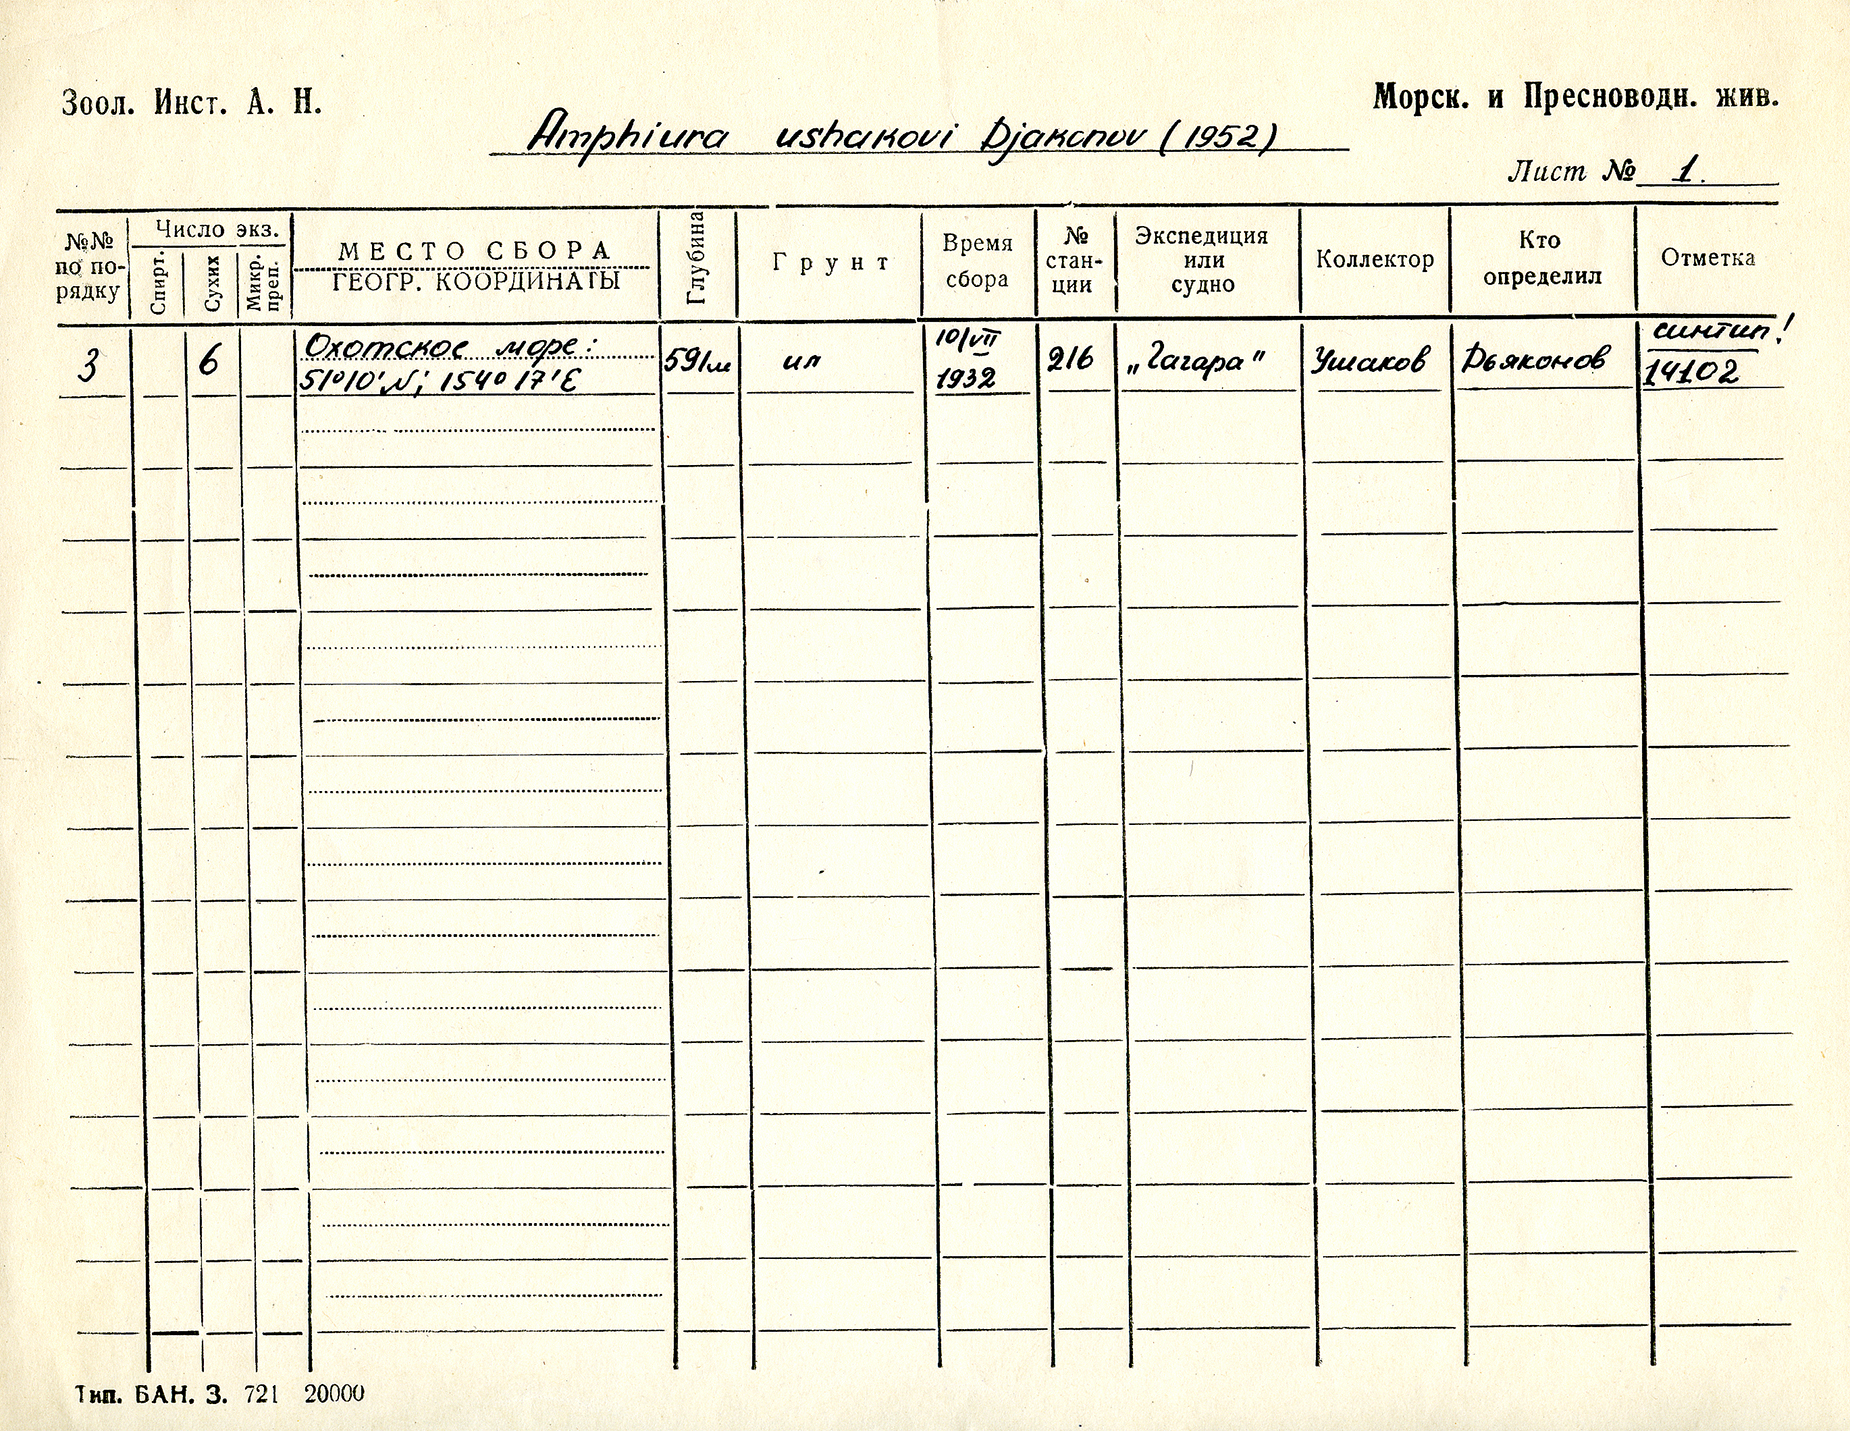 Зоол. Инст. А. Н.
Морск. и Пресноводн. жив.
Amphiura ushakovi Djakonov (1952)
Лист № 1.
№№ по по-рядку
Число экз.
Спирт.
Сухих
Микр. преп.
МЕСТО СБОРА
ГЕОГР. КООРДИНАТЫ
Глубина
Грунт
Время сбора
№ стан-ции
Экспедиция или судно
Коллектор
Кто определил
Отметка
3
6
Охотское море:
51°10'N; 154°17'E
591м
ил
10/VII
1932
216
„Гагара"
Ушаков
Дьяконов
синтип!
14102
Тип. БАН. З. 721 20000